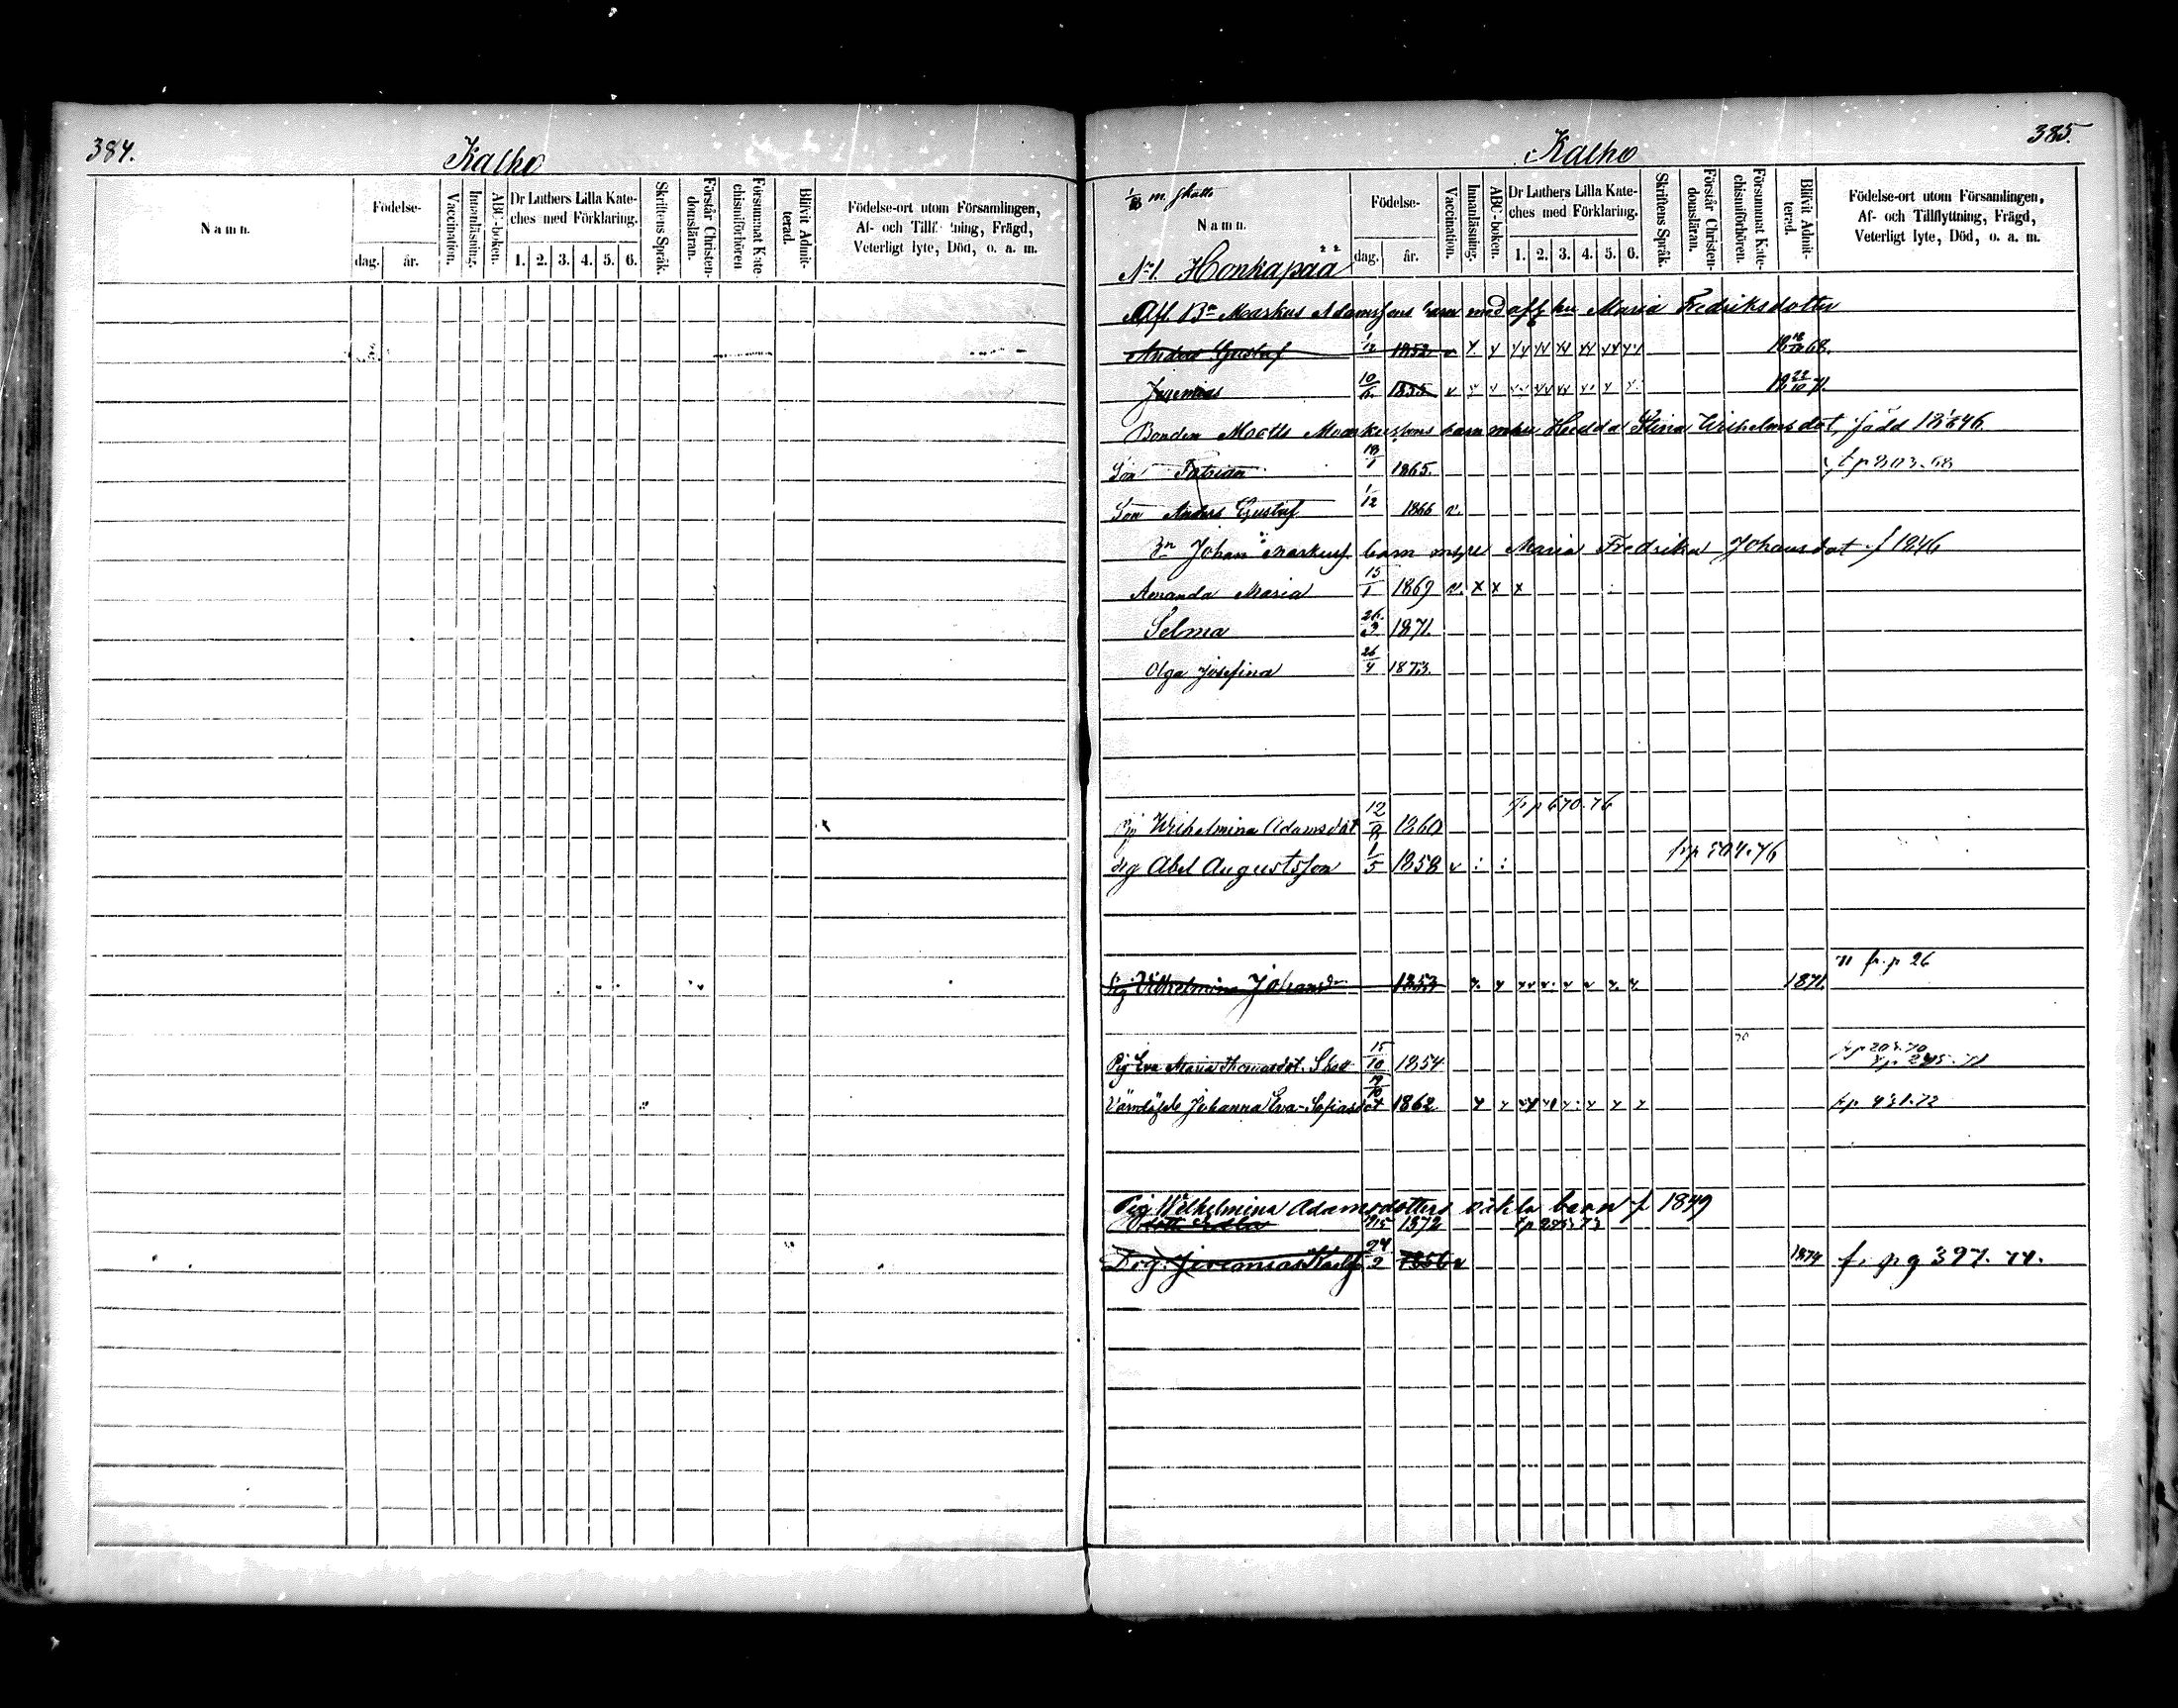 384.
Kalho
Namn.
Födelse-
dag.
år.
Vaccination.
Innanläsning.
ABC-boken.
Dr Luthers Lilla Kate-
ches med Förklaring.
1. 2. 3. 4. 5. 6.
Skriftens Språk.
Förstår Christen-
domsläran.
Försummat Kate-
chismiförhören
Blifvit Admit-
terad.
Födelse-ort utom Församlingen,
Af- och Tillflyttning, Frägd,
Veterligt lyte, Död, o. a. m.
385.
Kalho
Namn.
Födelse-
dag.
år.
Vaccination.
Innanläsning.
ABC-boken.
Dr Luthers Lilla Kate-
ches med Förklaring.
1. 2. 3. 4. 5. 6.
Skriftens Språk.
Förstår Christen-
domsläran.
Försummat Kate-
chismiförhören.
Blifvit Admit-
terad.
Födelse-ort utom Församlingen,
Af- och Tillflyttning, Frägd,
Veterligt lyte, Död, o. a. m.
No 1. Honkapää
Afl. Bn Markus Adamssons barn med Maria Fredriksdotter
Anders Gustaf 1/12 1852
Jeremias 10/6 1855
Bonden Matts Markussons barn m hu Hedda Stina Wilhelmsdot, född 1846
Son 18/1 1865.
Son Anders Gustaf 1/12 1866 v.
Johan Markuss. barn Maria Fredrika Johansdot f 1846
Amanda Maria 15/1 1869 v. x x x
Selma 26/3 1871.
Olga Josefina 26/4 1873.
fr p 670.76
Pig Wilhelmina Adamsdot 12/8 1860
Drg Abel Augustsson 1/5 1858 v
71 fr. p 26
Pig Vilhelmina Johansdr 1853 1871.
Pig Eva Maria Thomasdot. 15/10 1854
Värnlösa Johanna Eva-Sofiasdot 19/10 1862
Pig Wilhelmina Adamsdotters oäkta barn f 1849
1872
Drg. Jeremias 24/2 1856 v 1874 f. pg 397. 74.